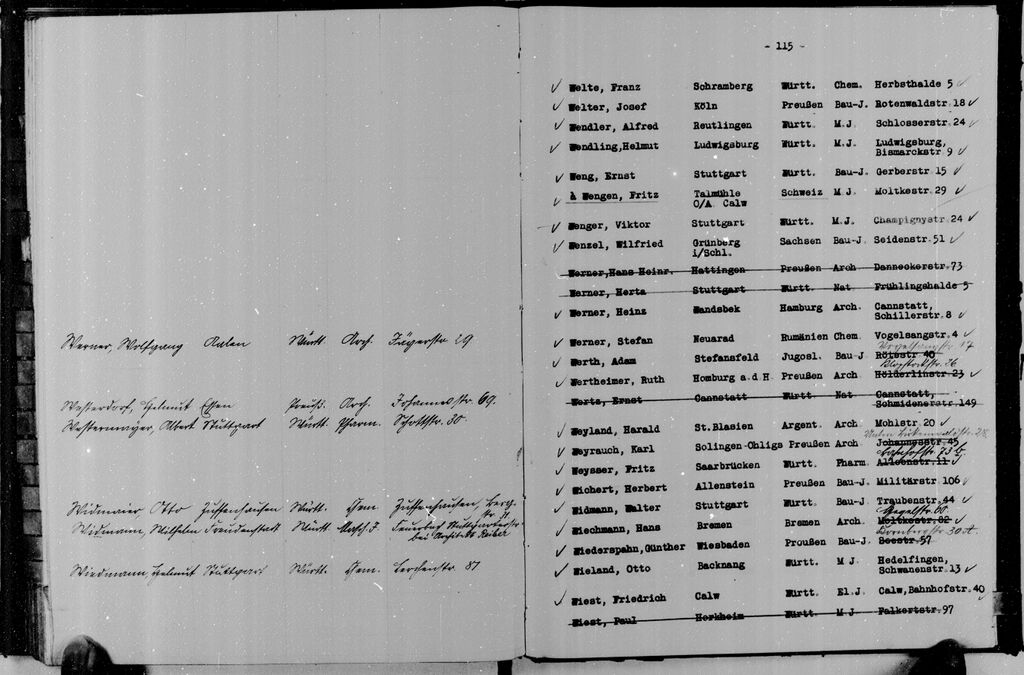 Werner, Wolfgang Aalen Württ. Arch. Jägerstr. 29
Westerdorf, Helmut Essen Preuß. Arch. Johannesstr. 69.
Westermayer, Albert Stuttgart Württ. Pharm. Schottstr. 30.
Widmaier Otto Zuffenhausen Württ. Chem. Zuffenhausen, Berg-
str. 7.
Widmann, Wilhelm Freudenstadt Württ. Masch. J. Feuerbach Stuttgarterstr.
bei Architekt
Wiedmann, Helmut Stuttgart Württ. Chem. Lerchenstr. 87
- 115 -
Welte, Franz Schramberg Württ. Chem. Herbsthalde 5
Welter, Josef Köln Preußen Bau-J. Rotenwaldstr. 18
Wendler, Alfred Reutlingen Württ. M.J. Schlosserstr. 24
Wendling,Helmut Ludwigsburg Württ. M.J. Ludwigsburg,
Bismarckstr. 9
Weng, Ernst Stuttgart Württ. Bau-J. Gerberstr. 15
à Wengen, Fritz Talmühle Schweiz M.J. Moltkestr. 29
O/A. Calw
Wenger, Viktor Stuttgart Württ. M.J. Champignystr. 24
Wenzel, Wilfried Grünberg Sachsen Bau-J. Seidenstr. 51
i/Schl.
Werner,Hans Heinr. Hattingen Preußen Arch Danneckerstr. 73
Werner, Herta Stuttgart Württ. Nat. Frühlingshalde 5
Werner, Heinz Wandsbek Hamburg Arch. Cannstatt,
Schillerstr. 8
Werner, Stefan Neuarad Rumänien Chem. Vogelsangstr. 4
Werth, Adam Stefansfeld Jugosl. Bau-J Rötestr 40
Wertheimer, Ruth Homburg a.d H. Preußen Arch Hölderlinstr. 23
Wertz, Ernst Cannstatt Württ Nat Cannstatt,
Schmidenerstr. 149
Weyland, Harald St.Blasien Argent. Arch Mohlstr 20
Weyrauch, Karl Solingen-Ohligs Preußen Arch Johannesstr. 45
Weysser, Fritz Saarbrücken Württ. Pharm. Alleenstr. 11
Wichert, Herbert Allenstein Preußen Bau-J. Militärstr. 106
Widmann, Walter Stuttgart Württ. Bau-J. Traubenstr. 44
Wiechmann, Hans Bremen Bremen Arch. Moltkestr. 82
Wiederspahn,Günther Wiesbaden Preußen Bau-J. Seestr. 57
Wieland, Otto Backnang Württ. M J. Hedelfingen,
Schwanenstr. 13
Wiest, Friedrich Calw Württ. El.J. Calw,Bahnhofstr. 40
Wiest, Paul Horkheim Württ. M J Falkertstr. 97